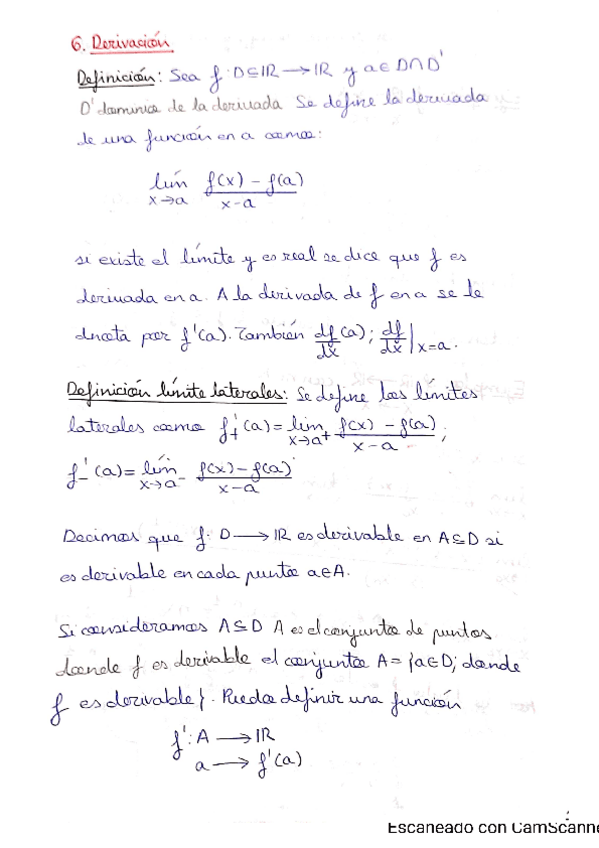 6. Derivación
Definición: Sea f: D⊆IR → IR y a∈D∩D'
D' dominio de la derivada Se define la derivada
de una función en a como:
lím f(x) - f(a)
x→a x-a
si existe el límite y es real se dice que f es
derivada en a. A la derivada de f en a se le
denota por f'(a). También df/dx (a); df/dx |x=a.
Definición límite laterales: Se define los límites
laterales como f'₊(a) = lim x→a⁺ f(x) - f(a) / x-a ;
f'₋(a) = lím x→a⁻ f(x) - f(a) / x-a
Decimos que f: D → IR es derivable en A⊆D si
es derivable en cada punto a∈A.
Si consideramos A⊆D A es el conjunto de puntos
donde f es derivable el conjunto A = {a∈D; donde
f es derivable}. Puedo definir una función
f': A → IR
a → f'(a)
Escaneado con CamScanne